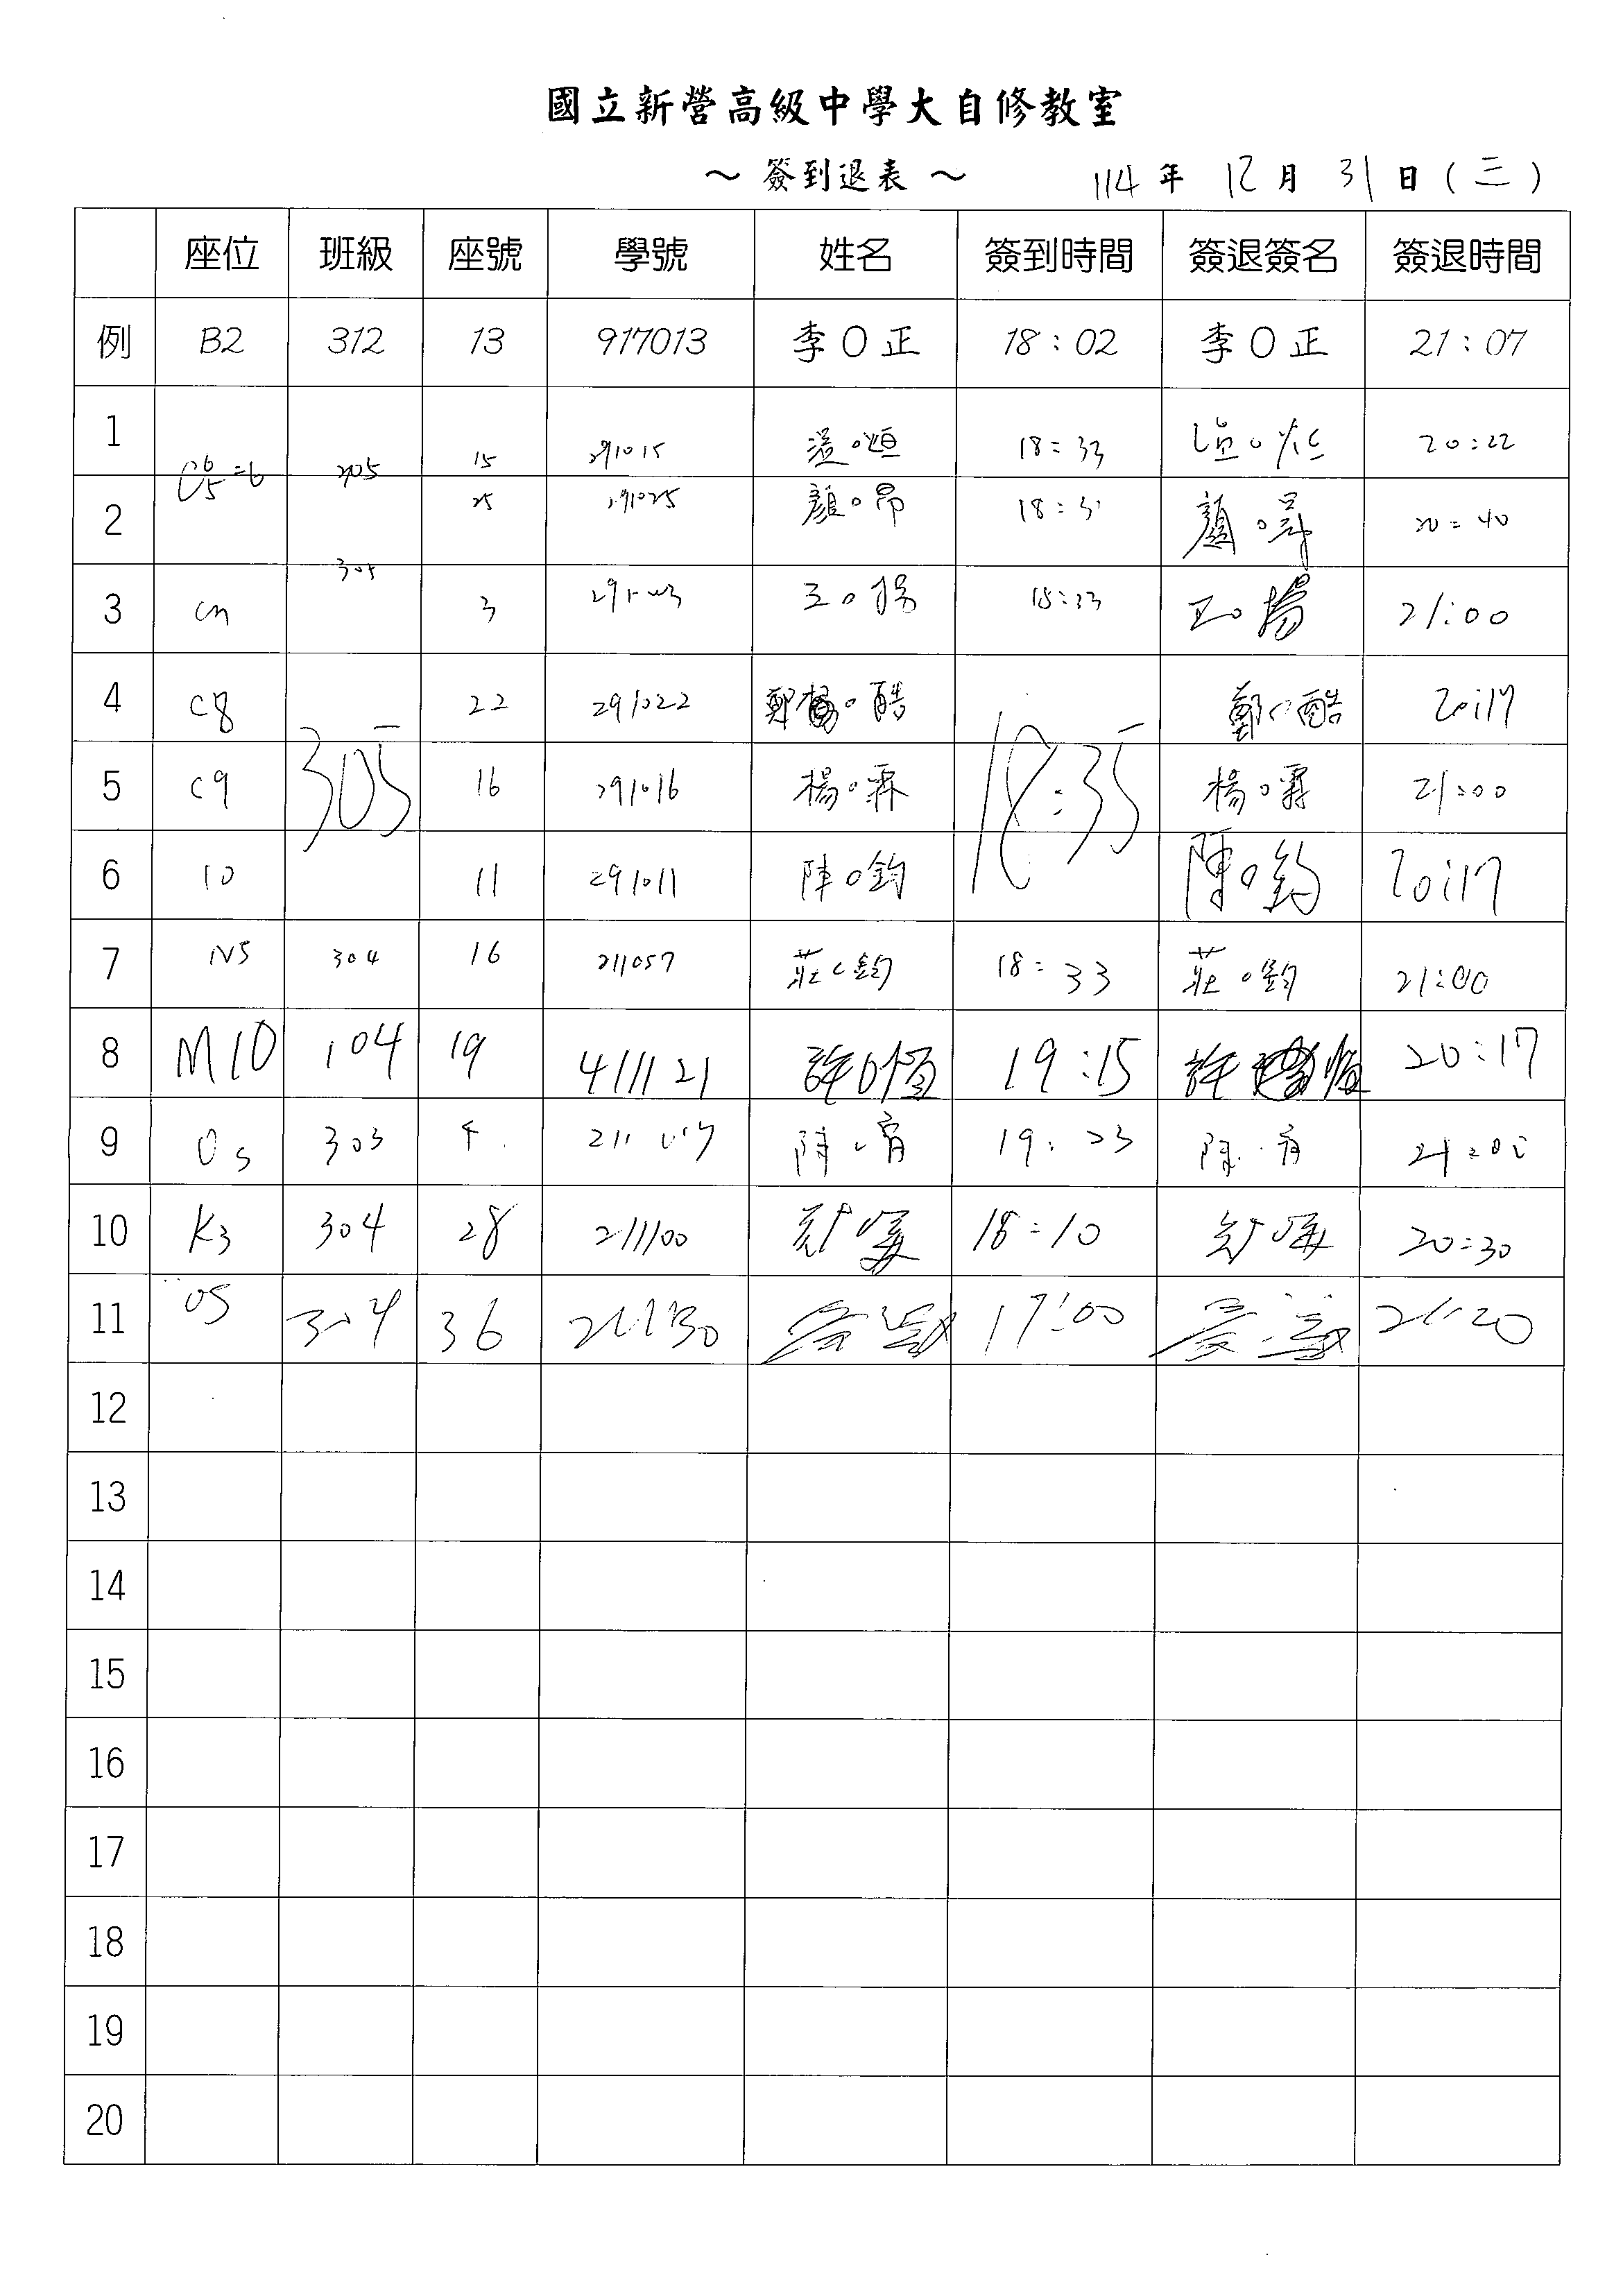 國立新營高級中學大自修教室
～ 簽到退表 ～ 114 年 12 月 31 日 ( 三 )
座位 班級 座號 學號 姓名 簽到時間 簽退簽名 簽退時間
例 B2 312 13 917013 李O正 18：02 李O正 21：07
1 15 291015 18：33 20:22
2 25 291025 顏o昂 顏o昂 20:40
3 305 3 王o揚 18:33 王o揚 21:00
4 C8 22 291022 鄭o酷 鄭o酷 20:17
5 C9 305 16 291016 楊o霖 18:35 楊o霖 21:00
6 10 11 291011 陳o鈞 陳o鈞 20:17
7 N5 304 16 211057 莊o鈞 18:33 莊o鈞 21:00
8 M10 104 19 411121 許o恆 19:15 許 恆 20:17
9 303 陳 19:23 陳
10 K3 304 28 211100 18:10 20:30
11 05 304 36 17:00 21:20
12
13
14
15
16
17
18
19
20